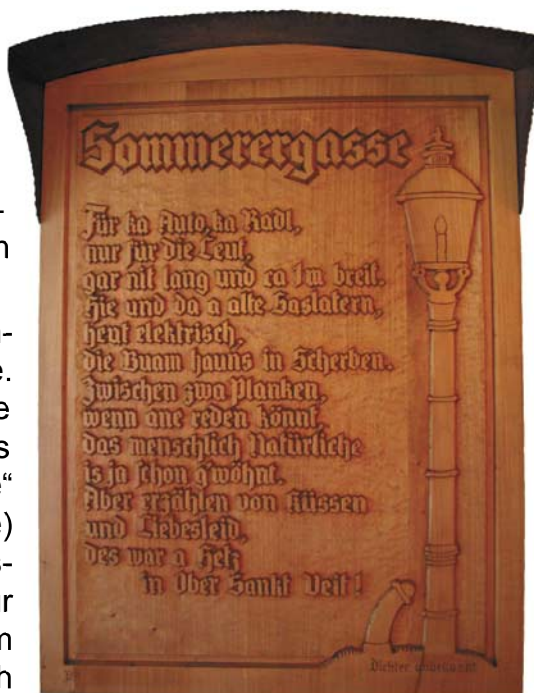 Sommerergasse
Für ka Auto, ka Radl,
nur für die Leut,
gar nit lang und ca 1m breit.
Hie und da a alte Gaslatern,
heut elektrisch,
die Buam hauns in Scherben.
Zwischen zwa Planken,
wenn ane reden könnt,
das menschlich Natürliche
is ja schon g'wöhnt.
Aber erzählen von Küssen
und Liebesleid,
des war a Hetz
in Ober Sankt Veit!
Dichter unbekannt